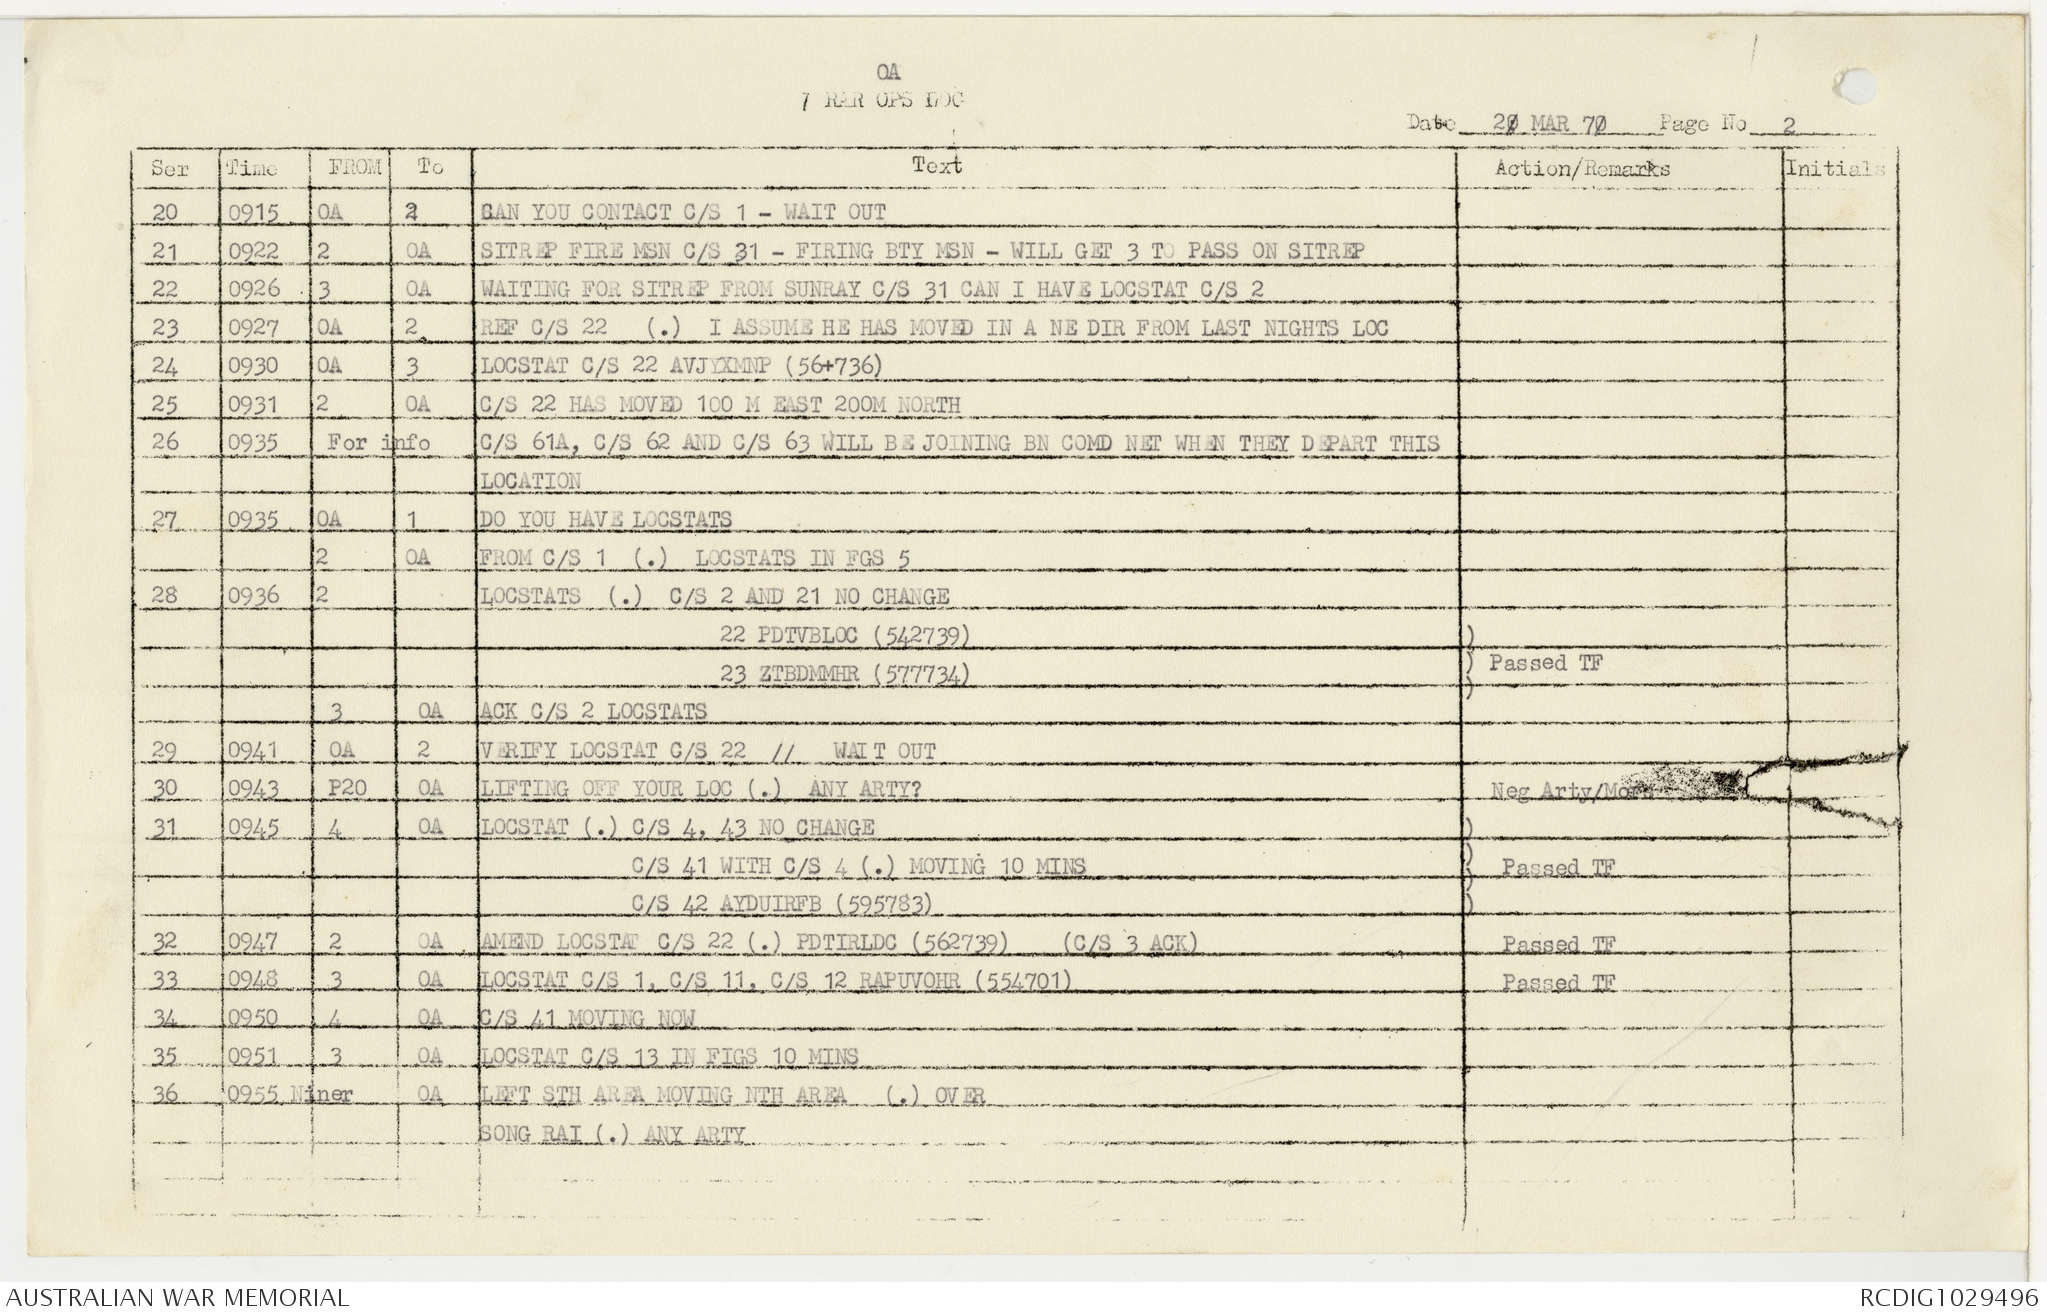 OA
7 RAR OPS LOG
Date 20 MAR 70 Page No 2
Ser Time FROM To Text Action/Remarks Initials
20 0915 OA 2 CAN YOU CONTACT C/S 1 - WAIT OUT
21 0922 2 OA SITREP FIRE MSN C/S 31 - FIRING BTY MSN - WILL GET 3 TO PASS ON SITREP
22 0926 3 OA WAITING FOR SITREP FROM SUNRAY C/S 31 CAN I HAVE LOCSTAT C/S 2
23 0927 OA 2 REF C/S 22 (.) I ASSUME HE HAS MOVED IN A NE DIR FROM LAST NIGHTS LOC
24 0930 OA 3 LOCSTAT C/S 22 AVJYXMNP (56+736)
25 0931 2 OA C/S 22 HAS MOVED 100 M EAST 200M NORTH
26 0935 For info C/S 61A, C/S 62 AND C/S 63 WILL BE JOINING BN COMD NET WHEN THEY DEPART THIS
LOCATION
27 0935 OA 1 DO YOU HAVE LOCSTATS
2 OA FROM C/S 1 (.) LOCSTATS IN FGS 5
28 0936 2 LOCSTATS (.) C/S 2 AND 21 NO CHANGE
22 PDTVBLOC (542739) )
) Passed TF
23 ZTBDMMHR (577734) )
3 OA ACK C/S 2 LOCSTATS
29 0941 OA 2 VERIFY LOCSTAT C/S 22 // WAIT OUT
30 0943 P20 OA LIFTING OFF YOUR LOC (.) ANY ARTY? Neg Arty/Mors
31 0945 4 OA LOCSTAT (.) C/S 4, 43 NO CHANGE )
C/S 41 WITH C/S 4 (.) MOVING 10 MINS ) Passed TF
C/S 42 AYDUIRFB (595783) )
32 0947 2 OA AMEND LOCSTAT C/S 22 (.) PDTIRLDC (562739) (C/S 3 ACK) Passed TF
33 0948 3 OA LOCSTAT C/S 1, C/S 11, C/S 12 RAPUVOHR (554701) Passed TF
34 0950 4 OA C/S 41 MOVING NOW
35 0951 3 OA LOCSTAT C/S 13 IN FIGS 10 MINS
36 0955 Niner OA LEFT STH AREA MOVING NTH AREA (.) OVER
SONG RAI (.) ANY ARTY
AUSTRALIAN WAR MEMORIAL RCDIG1029496